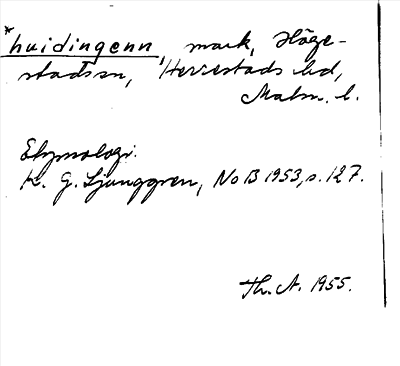 *huidingenn, mark, Höge-
stads sn, Herrestads hd,
Malm. l.
Etymologi.
K. G. Ljunggren, NoB 1953, s. 127.
Th. A. 1955.